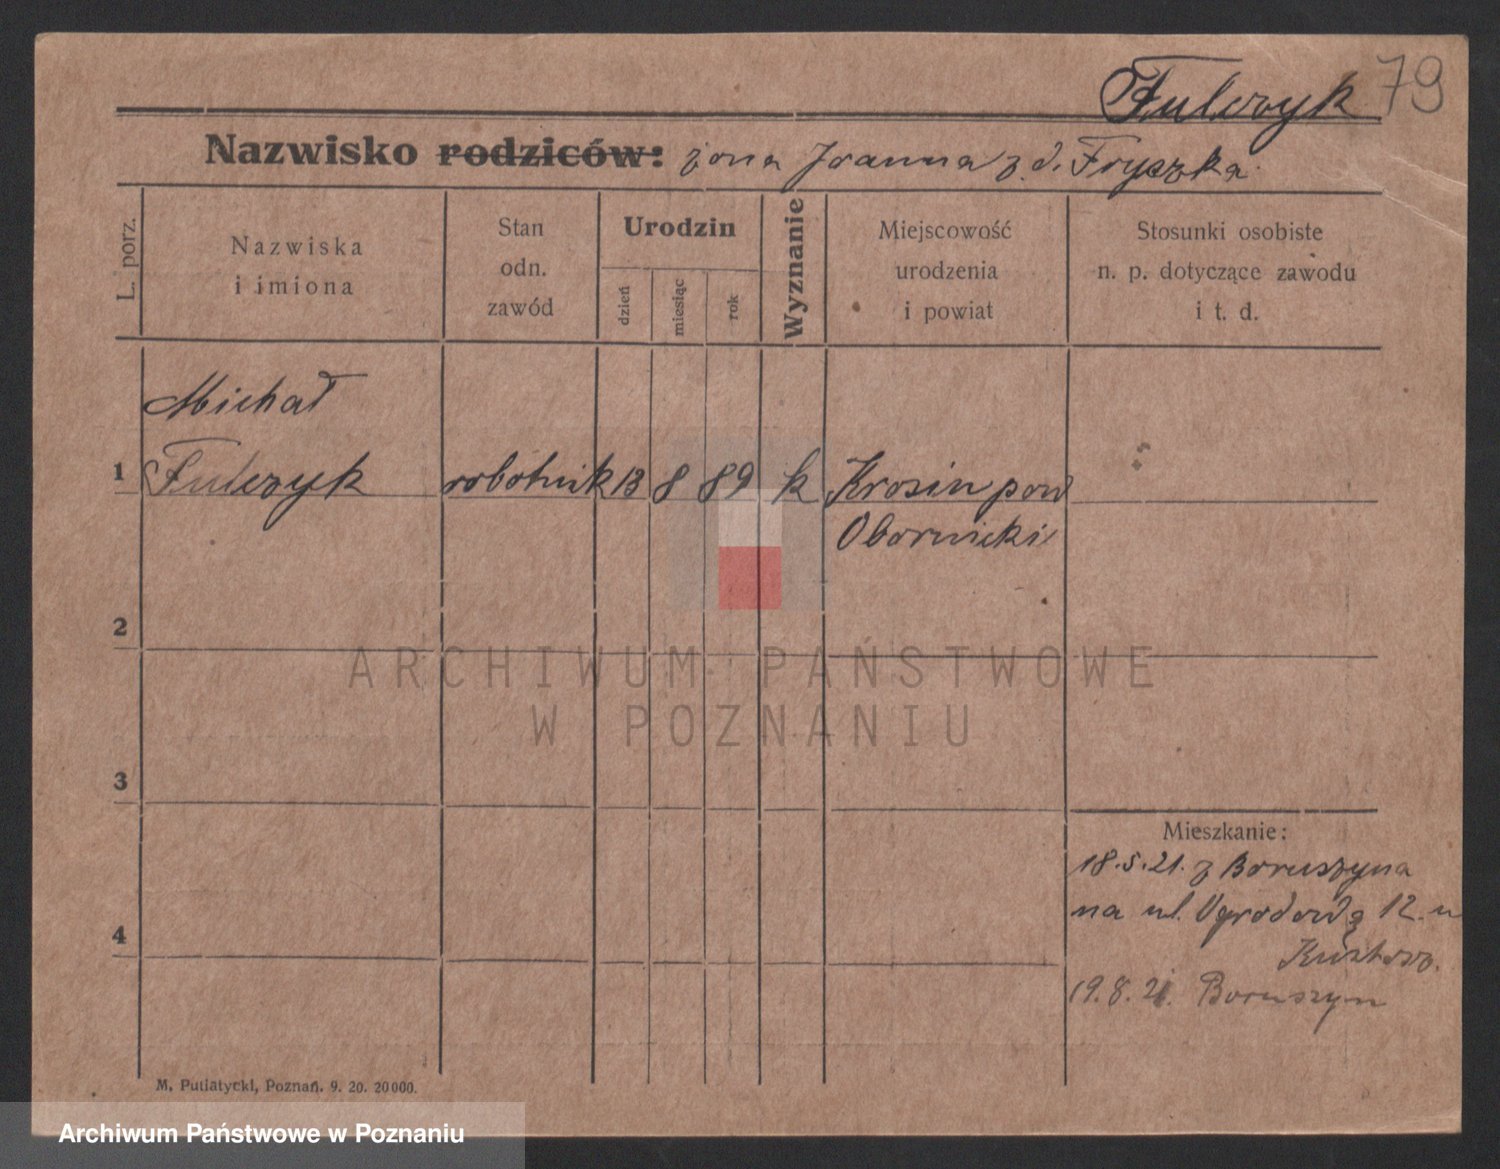 Fulczyk 79
Nazwisko rodziców: żona Joanna z d. Fryszka
L. porz.
Nazwiska
i imiona
Stan
odn.
zawód
Urodzin
dzień
miesiąc
rok
Wyznanie
Miejscowość
urodzenia
i powiat
Stosunki osobiste
n. p. dotyczące zawodu
i t. d.
Michał
1 Fulczyk robotnik 13 8 89 k Krosin pow
Obornicki
2
3
4
Mieszkanie:
18.5.21. z Boruszyna
na ul. Ogrodową 12. u
19.8.21. Boruszyn
M. Putiatycki, Poznań. 9. 20. 20000.
ARCHIWUM PAŃSTWOWE
W POZNANIU
Archiwum Państwowe w Poznaniu